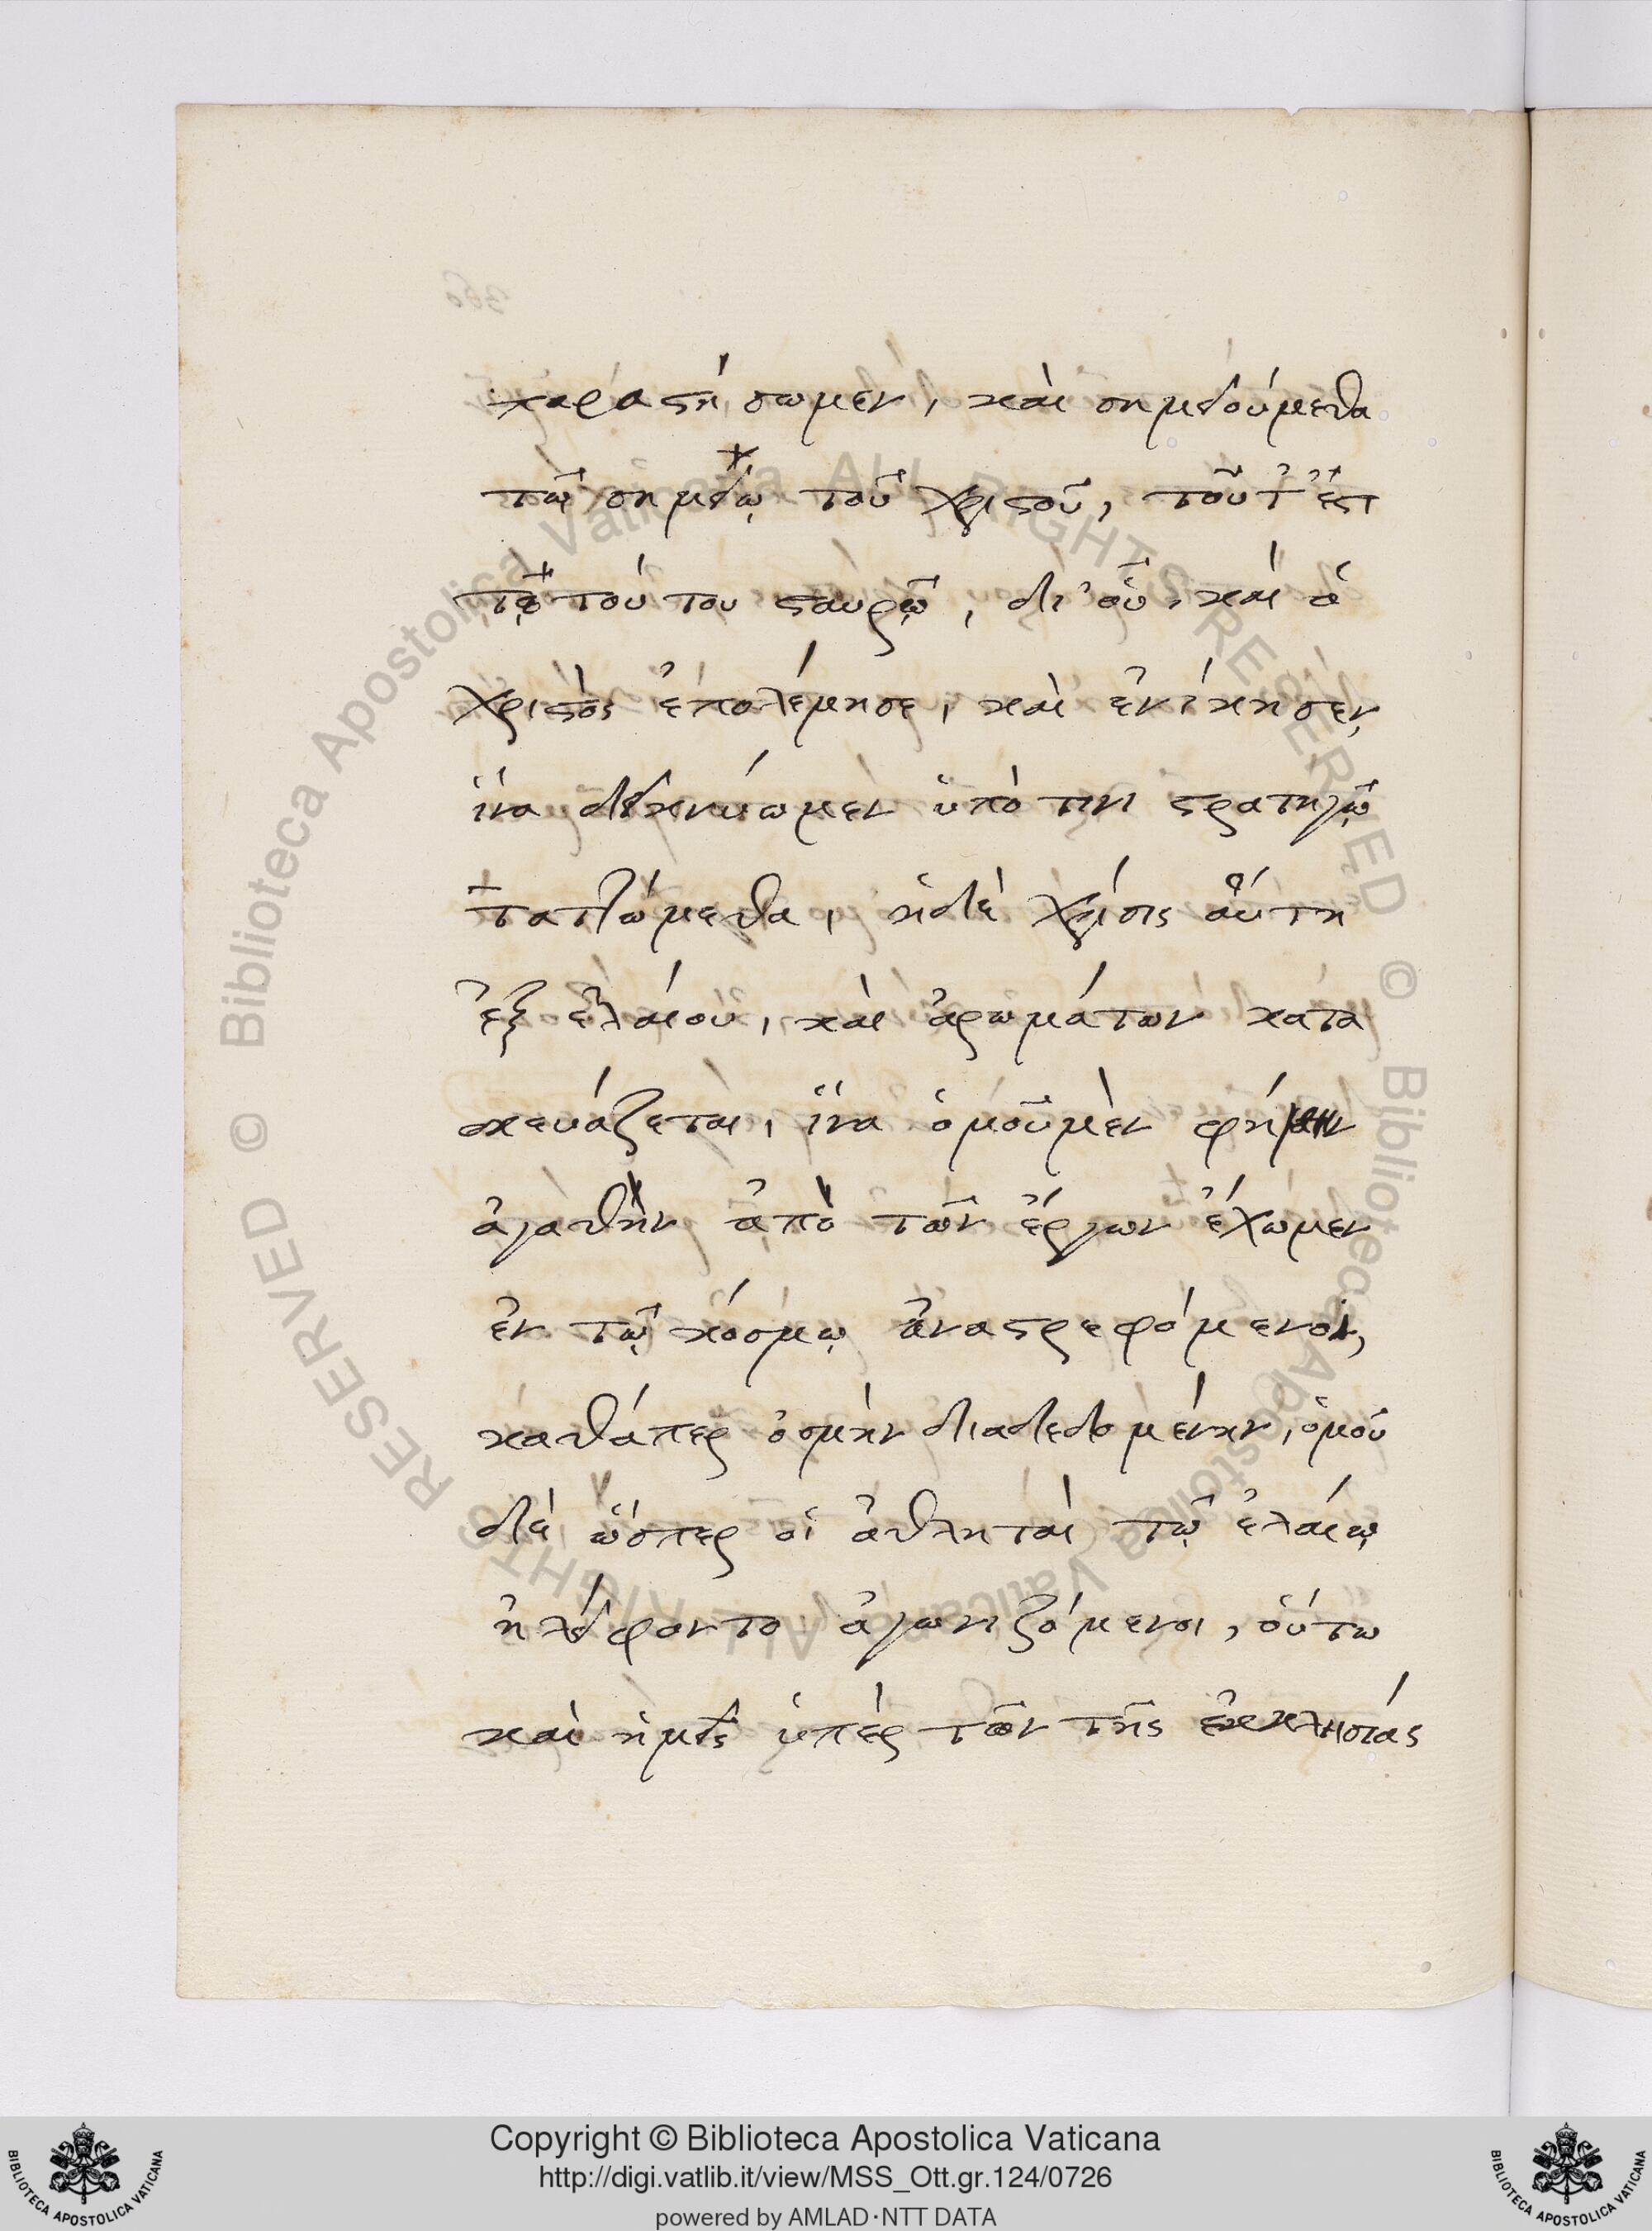 παραστήσωμεν, καὶ σημειούμεθα
τῶ σημείῳ τοῦ χριστοῦ, τοῦτ' ἔστι
τῷ τούτου σταυρῷ, δι' οὗ, καὶ ὁ
χριστὸς ἐπολέμησε, καὶ ἐνίκησεν,
ἵνα δεικνύωμεν ὑπὸ τίνι στρατηγῷ
ταττώμεθα, ἡ δὲ χρίσις αὕτη
ἐξ ἐλαίου, καὶ ἀρωμάτων κατα
σκευάζεται, ἵνα ὁμοῦ μὲν φήμην
ἀγαθὴν ἀπὸ τῶν ἔργων ἔχωμεν
ἐν τῷ κόσμῳ ἀναστρεφόμενοι,
καθάπερ ὀσμὴν διαδεδομένην, ὁμοῦ
δὲ ὥσπερ οἱ ἀθληταὶ τῷ ἐλαίῳ
ἠλείφοντο ἀγωνιζόμενοι, οὕτω
καὶ ἡμεῖς ὑπὲρ τῶν τῆς ἐκκλησίας
© Biblioteca Apostolica Vaticana ALL RIGHTS RESERVED © Biblioteca Apostolica Vaticana ALL RIGHTS RESERVED
Copyright © Biblioteca Apostolica Vaticana
http://digi.vatlib.it/view/MSS_Ott.gr.124/0726
powered by AMLAD·NTT DATA
BIBLIOTECA APOSTOLICA VATICANA
BIBLIOTECA APOSTOLICA VATICANA